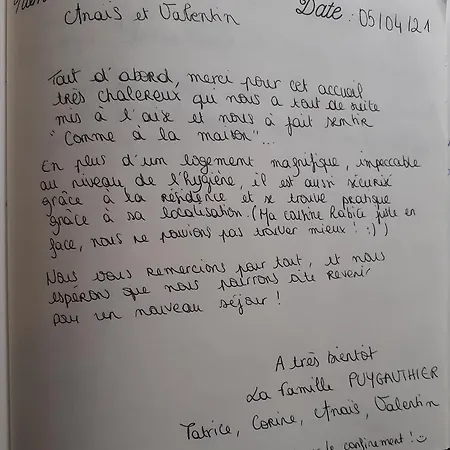 Anaïs et Valentin
Date : 05/04/21
Tout d'abord, merci pour cet accueil
très chalereux qui nous a tout de suite
mis à l'aise et nous à fait sentir
"Comme à la maison"...
En plus d'un logement magnifique, impeccable
au niveau de l'hygiène, il est aussi sécurisé
grâce à la résidence et se trouve pratique
grâce à sa localisation. (Ma cousine habite juste en
face, nous ne pouvions pas trouver mieux ! :) )
Nous vous remercions pour tout, et nous
espérons que nous pourrons vite revenir
pour un nouveau séjour !
A très bientôt
La famille PUYGAUTHIER
Patrice, Corine, Anaïs, Valentin
le confinement !